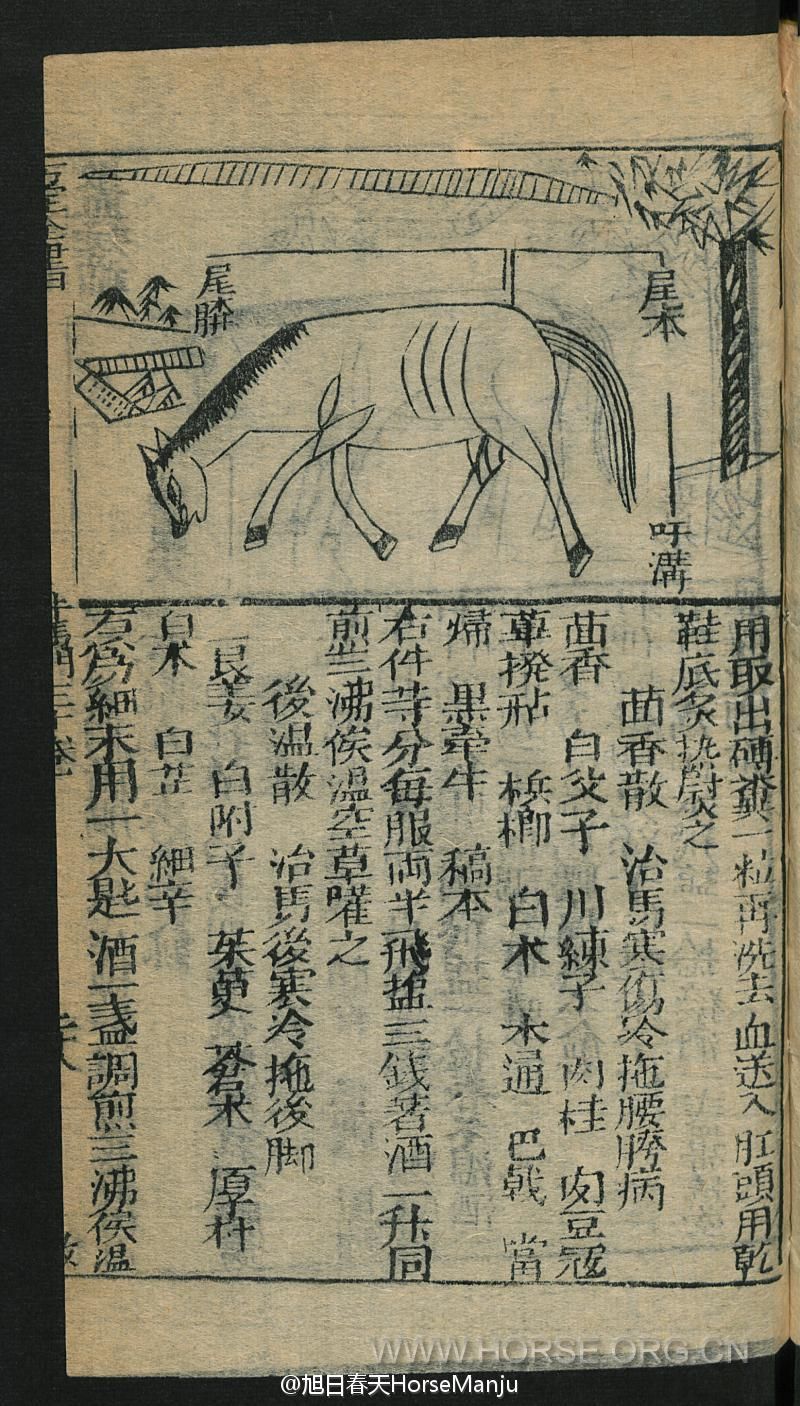 尾本
尾骿
吁溝
用取出硬糞一粒再洗去血送入肛頭用乾
鞋底炙熱熨之
茴香散 治馬寒傷冷拖腰胯病
茴香 白父子 川練子 肉桂 肉豆冦
蓽撥 梹榔 白朮 木通 巴戟 當
㷌 黑牽牛 稿本
右件等分每服両半飛塩三錢著酒一升同
煎三沸候温空草嚾之
後温散 治馬後寒冷拖後脚
良姜 白附子 茱萸 蒼朮 厚朴
白朮 白芷 細辛
右為細末用一大匙酒一盞調煎三沸候温
WWW.HORSE.ORG.CN
@旭日春天HorseManju